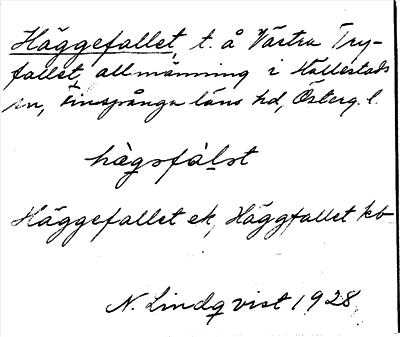 Häggefallet, t. å Västra Try-
fallet, allmänning i Hällestads
sn, Finspånga läns hd, Österg. l.
hàgsfàlst
Häggefallet ek, Häggfallet kb
N. Lindqvist 1928